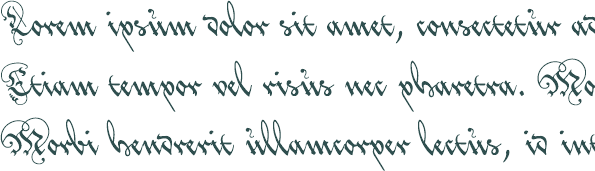 Lorem ipsum dolor sit amet, consectetur ad
Etiam tempor vel risus nec pharetra. Mo
Morbi hendrerit ullamcorper lectus, id int